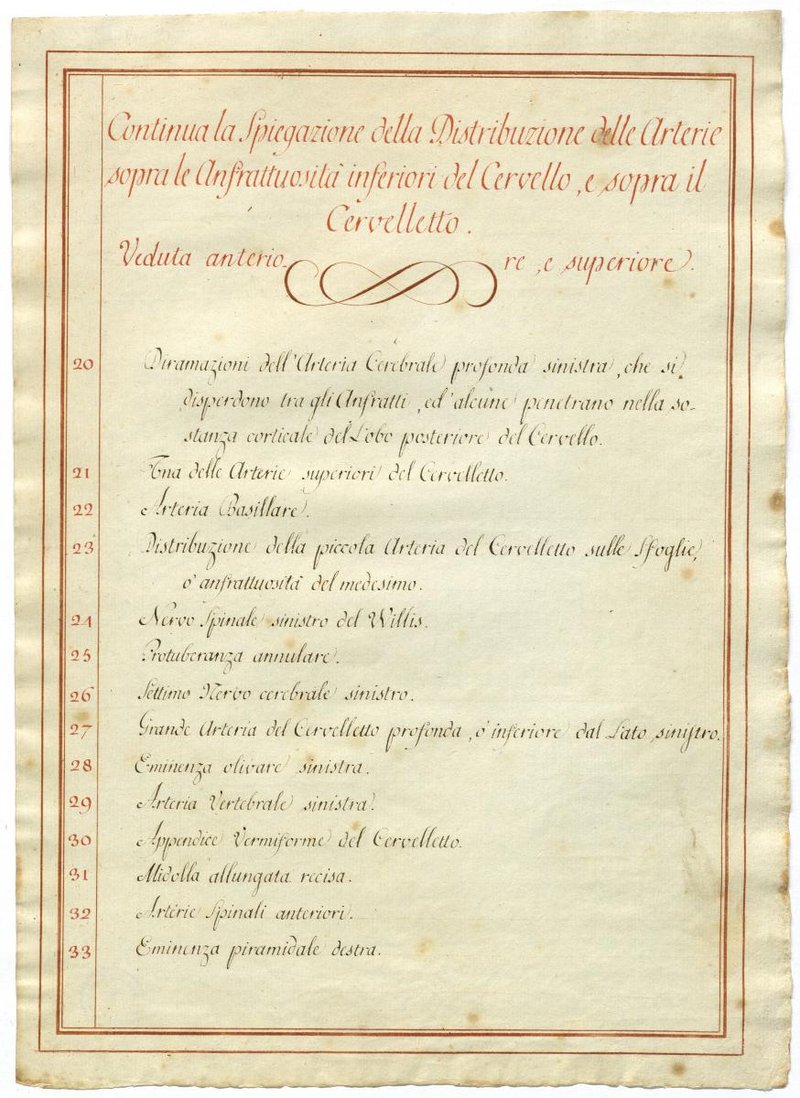 Continua la Spiegazione della Distribuzione delle Arterie
sopra le Anfrattuosità inferiori del Cervello, e sopra il
Cervelletto.
Veduta anteriore, e superiore.
20 Diramazioni dell'Arteria Cerebrale profonda sinistra, che si
disperdono tra gli Anfratti, ed' alcune penetrano nella so-
stanza corticale del Lobo posteriore del Cervello.
21 Una delle Arterie superiori del Cervelletto.
22 Arteria Basillare.
23 Distribuzione della piccola Arteria del Cervelletto sulle Sfoglie,
o' anfrattuosità del medesimo.
24 Nervo Spinale sinistro del Willis.
25 Protuberanza annulare.
26 Settimo Nervo cerebrale sinistro.
27 Grande Arteria del Cervelletto profonda, o' inferiore dal Lato sinistro.
28 Eminenza olivare sinistra.
29 Arteria Vertebrale sinistra.
30 Appendice Vermiforme del Cervelletto.
31 Midolla allungata recisa.
32 Arterie Spinali anteriori.
33 Eminenza piramidale destra.